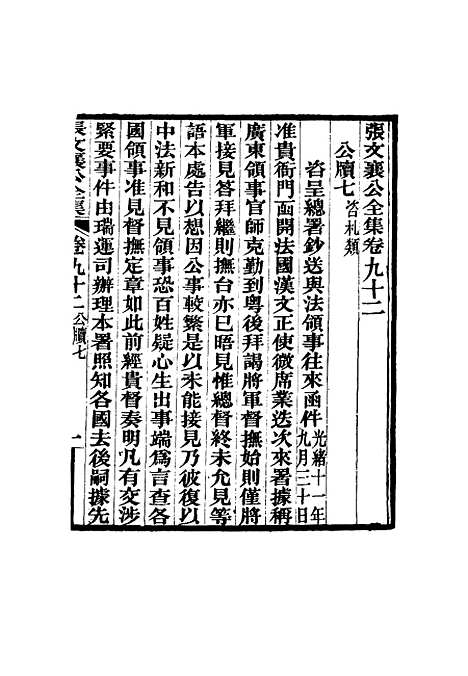 張文襄公全集卷九十二
公牘七咨札類
咨呈總署鈔送與法領事往來函件光緒十一年九月三十日
准貴衙門函開法國漢文正使微席葉迭次來署據稱
廣東領事官師克勤到粵後拜謁將軍督撫始則僅將
軍接見答拜繼則撫台亦已晤見惟總督終未允見等
語本處告以想因公事較繁是以未能接見乃彼復以
中法新和不見領事恐百姓疑心生出事端為言查各
國領事准見督撫定章如此前經貴督奏明凡有交涉
緊要事件由瑞運司辦理本署照知各國去後嗣據先
張文襄公全集 卷九十二 公牘七 一